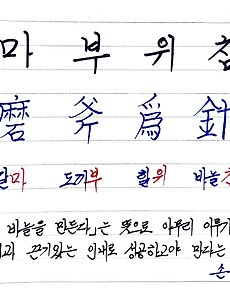 마 부 위 침
磨 斧 爲 針
갈마 도끼부 할위 바늘침
바늘을 만든다」는 뜻으로 아무리 이루기
끈기있는 인내로 성공하고야 만다는
손